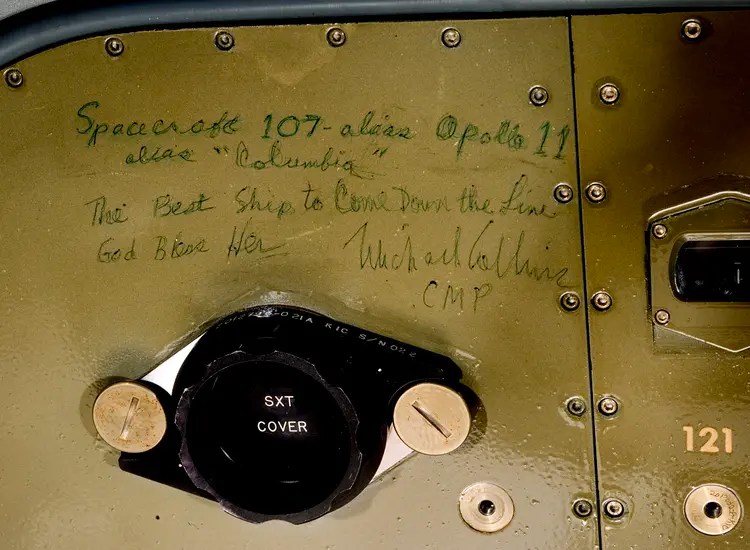 Spacecraft 107-alias Apollo 11
alias "Columbia"
The Best Ship to Come Down the Line
God Bless Her
Michael Collins
CMP
021A KIC S/N 022
SXT
COVER
121